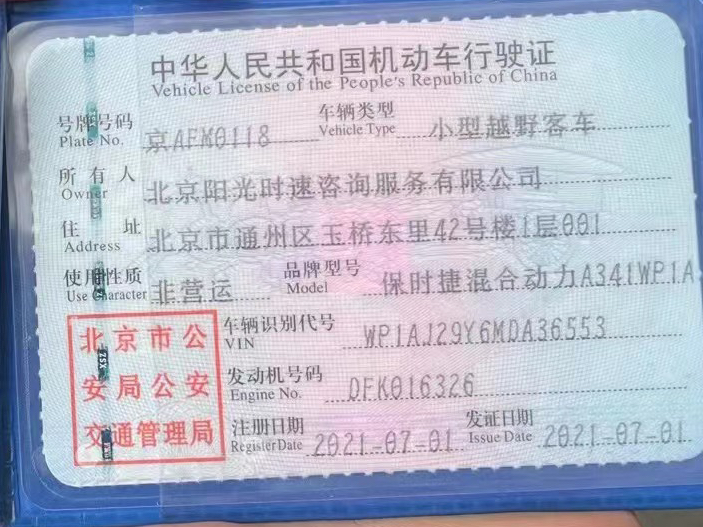 中华人民共和国机动车行驶证
Vehicle License of the People's Republic of China
号牌号码 京AFM0118 车辆类型 小型越野客车
Plate No. Vehicle Type
所有人 北京阳光时速咨询服务有限公司
Owner
住址 北京市通州区玉桥东里42号楼1层001
Address
使用性质 非营运 品牌型号 保时捷混合动力A341WP1A
Use Character Model
北京市公安局公安交通管理局
车辆识别代号 WP1AJ29Y6MDA36553
VIN
发动机号码 DFK016326
Engine No.
注册日期 2021-07-01 发证日期 2021-07-01
Register Date Issue Date